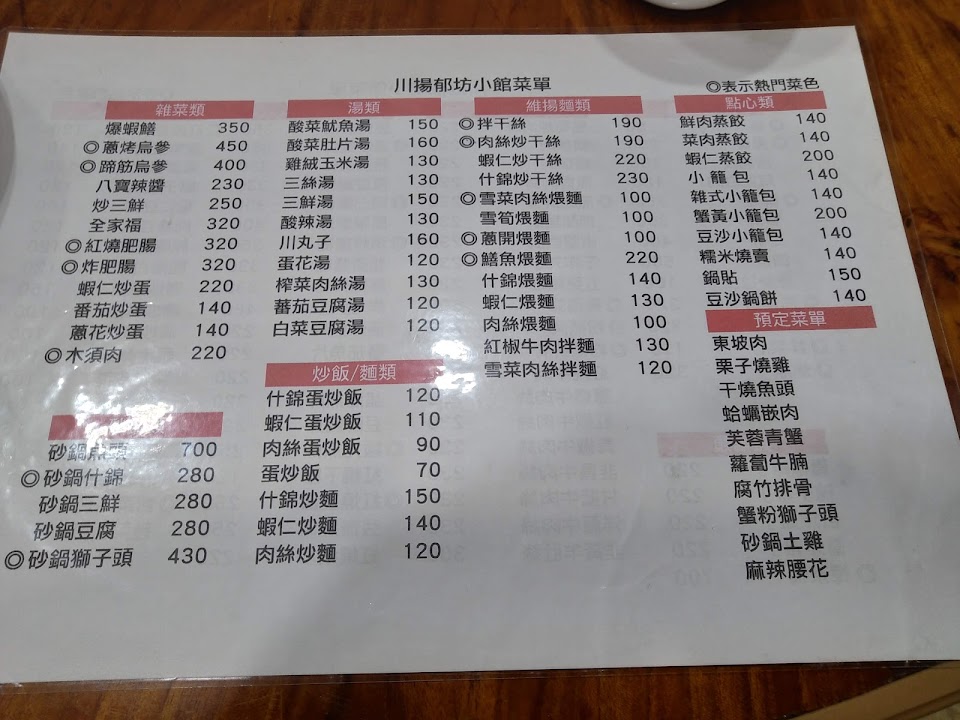 川揚郁坊小館菜單
◎表示熱門菜色
雜菜類
爆蝦鱔 350
◎蔥烤烏參 450
◎蹄筋烏參 400
八寶辣醬 230
炒三鮮 250
全家福 320
◎紅燒肥腸 320
◎炸肥腸 320
蝦仁炒蛋 220
番茄炒蛋 140
蔥花炒蛋 140
◎木須肉 220
砂鍋魚頭 700
◎砂鍋什錦 280
砂鍋三鮮 280
砂鍋豆腐 280
◎砂鍋獅子頭 430
湯類
酸菜魷魚湯 150
酸菜肚片湯 160
雞絨玉米湯 130
三絲湯 130
三鮮湯 150
酸辣湯 130
川丸子 160
蛋花湯 120
榨菜肉絲湯 130
蕃茄豆腐湯 120
白菜豆腐湯 120
炒飯/麵類
什錦蛋炒飯 120
蝦仁蛋炒飯 110
肉絲蛋炒飯 90
蛋炒飯 70
什錦炒麵 150
蝦仁炒麵 140
肉絲炒麵 120
維揚麵類
◎拌干絲 190
◎肉絲炒干絲 190
蝦仁炒干絲 220
什錦炒干絲 230
◎雪菜肉絲煨麵 100
雪筍煨麵 100
◎蔥開煨麵 100
◎鱔魚煨麵 220
什錦煨麵 140
蝦仁煨麵 130
肉絲煨麵 100
紅椒牛肉拌麵 130
雪菜肉絲拌麵 120
點心類
鮮肉蒸餃 140
菜肉蒸餃 140
蝦仁蒸餃 200
小龍包 140
雜式小龍包 140
蟹黃小龍包 200
豆沙小龍包 140
糯米燒賣 140
鍋貼 150
豆沙鍋餅 140
預定菜單
東坡肉
栗子燒雞
干燒魚頭
蛤蠣嵌肉
芙蓉青蟹
蘿蔔牛腩
腐竹排骨
蟹粉獅子頭
砂鍋土雞
麻辣腰花